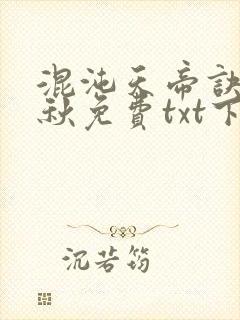 混沌天帝訣
秋免費txt下
沉若筠